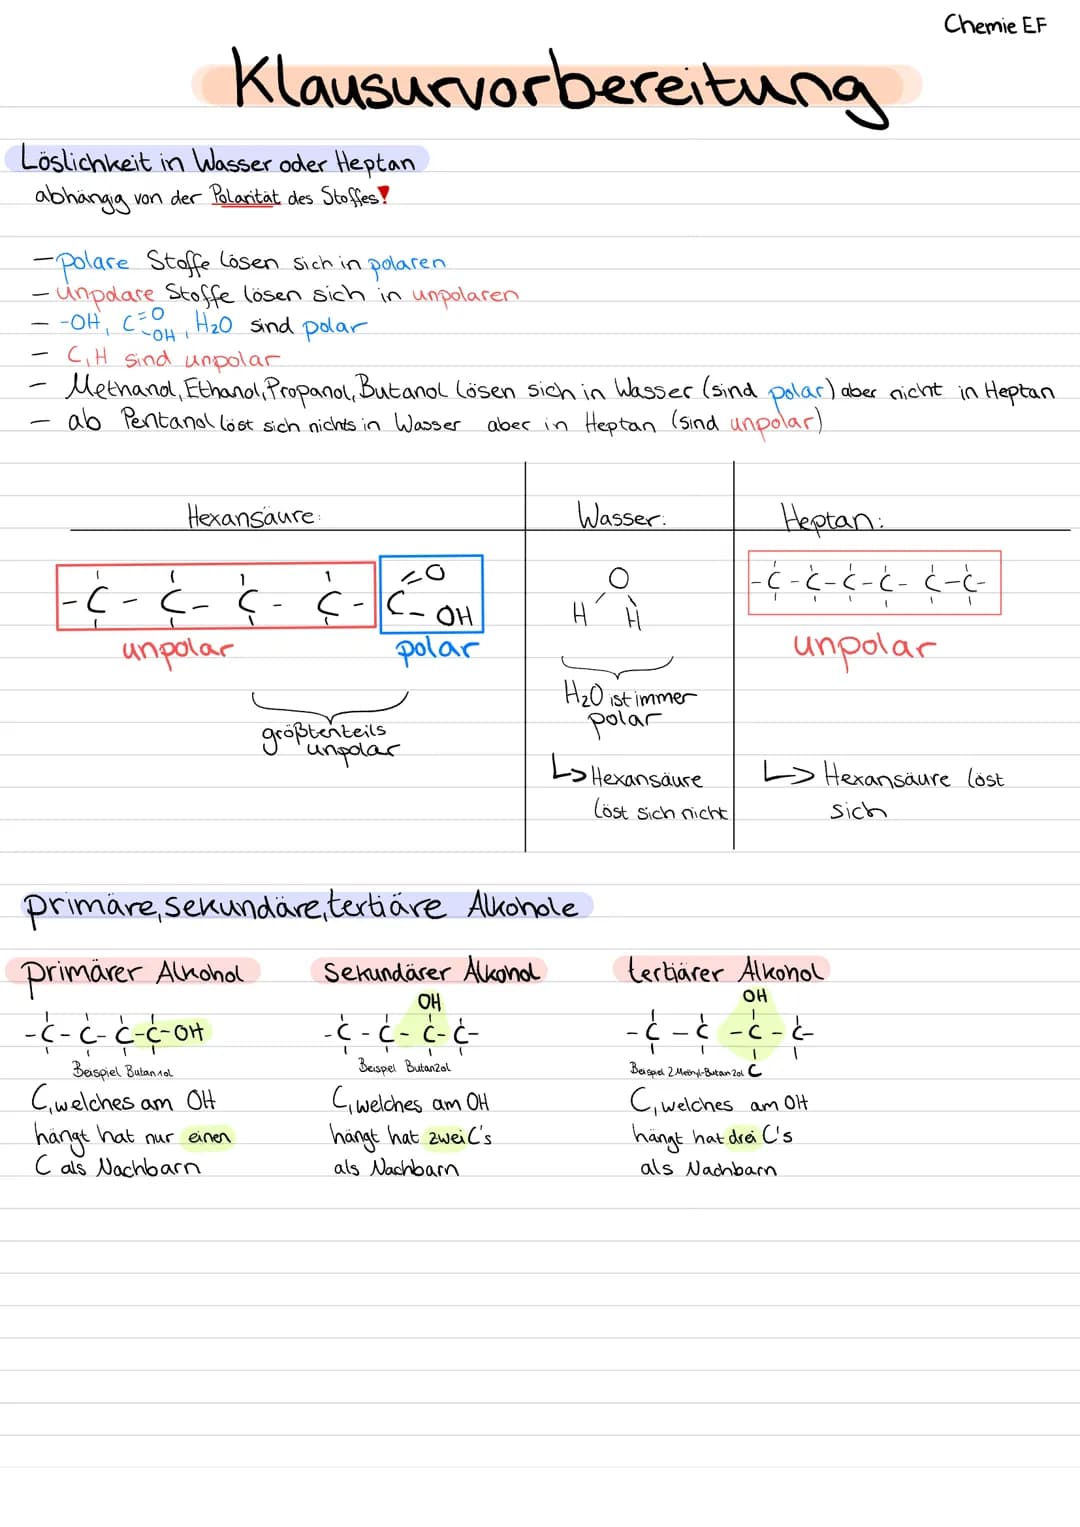 Chemie EF
Klausurvorbereitung
Löslichkeit in Wasser oder Heptan
abhängig von der Polarität des Stoffes!
- polare Stoffe lösen sich in polaren
- unpolare Stoffe lösen sich in unpolaren
- -OH, C=O -OH, H₂O sind polar
- C,H sind unpolar
- Methanol, Ethanol, Propanol, Butanol lösen sich in Wasser (sind polar) aber nicht in Heptan
- ab Pentanol löst sich nichts in Wasser aber in Heptan (sind unpolar)
Hexansäure: Wasser: Heptan:
-C-C-C-C-C=O -OH
O
H H
-C-C-C-C-C-C-
unpolar polar unpolar
H₂O ist immer
polar
größtenteils
unpolar
↳ Hexansäure
löst sich nicht
↳ Hexansäure löst
sich
primäre, sekundäre, tertiäre Alkohole
primärer Alkohol
-C-C-C-C-OH
Beispiel Butan1ol
C, welches am OH
hängt hat nur einen
C als Nachbarn
Sekundärer Alkohol
OH
-C-C-C-C-
Beispel Butan2ol
C, welches am OH
hängt hat zwei C's
als Nachbarn
tertiärer Alkohol
OH
-C-C-C-C-
C
Beispiel 2Methyl-Butan2ol
C, welches am OH
hängt hat drei C's
als Nachbarn